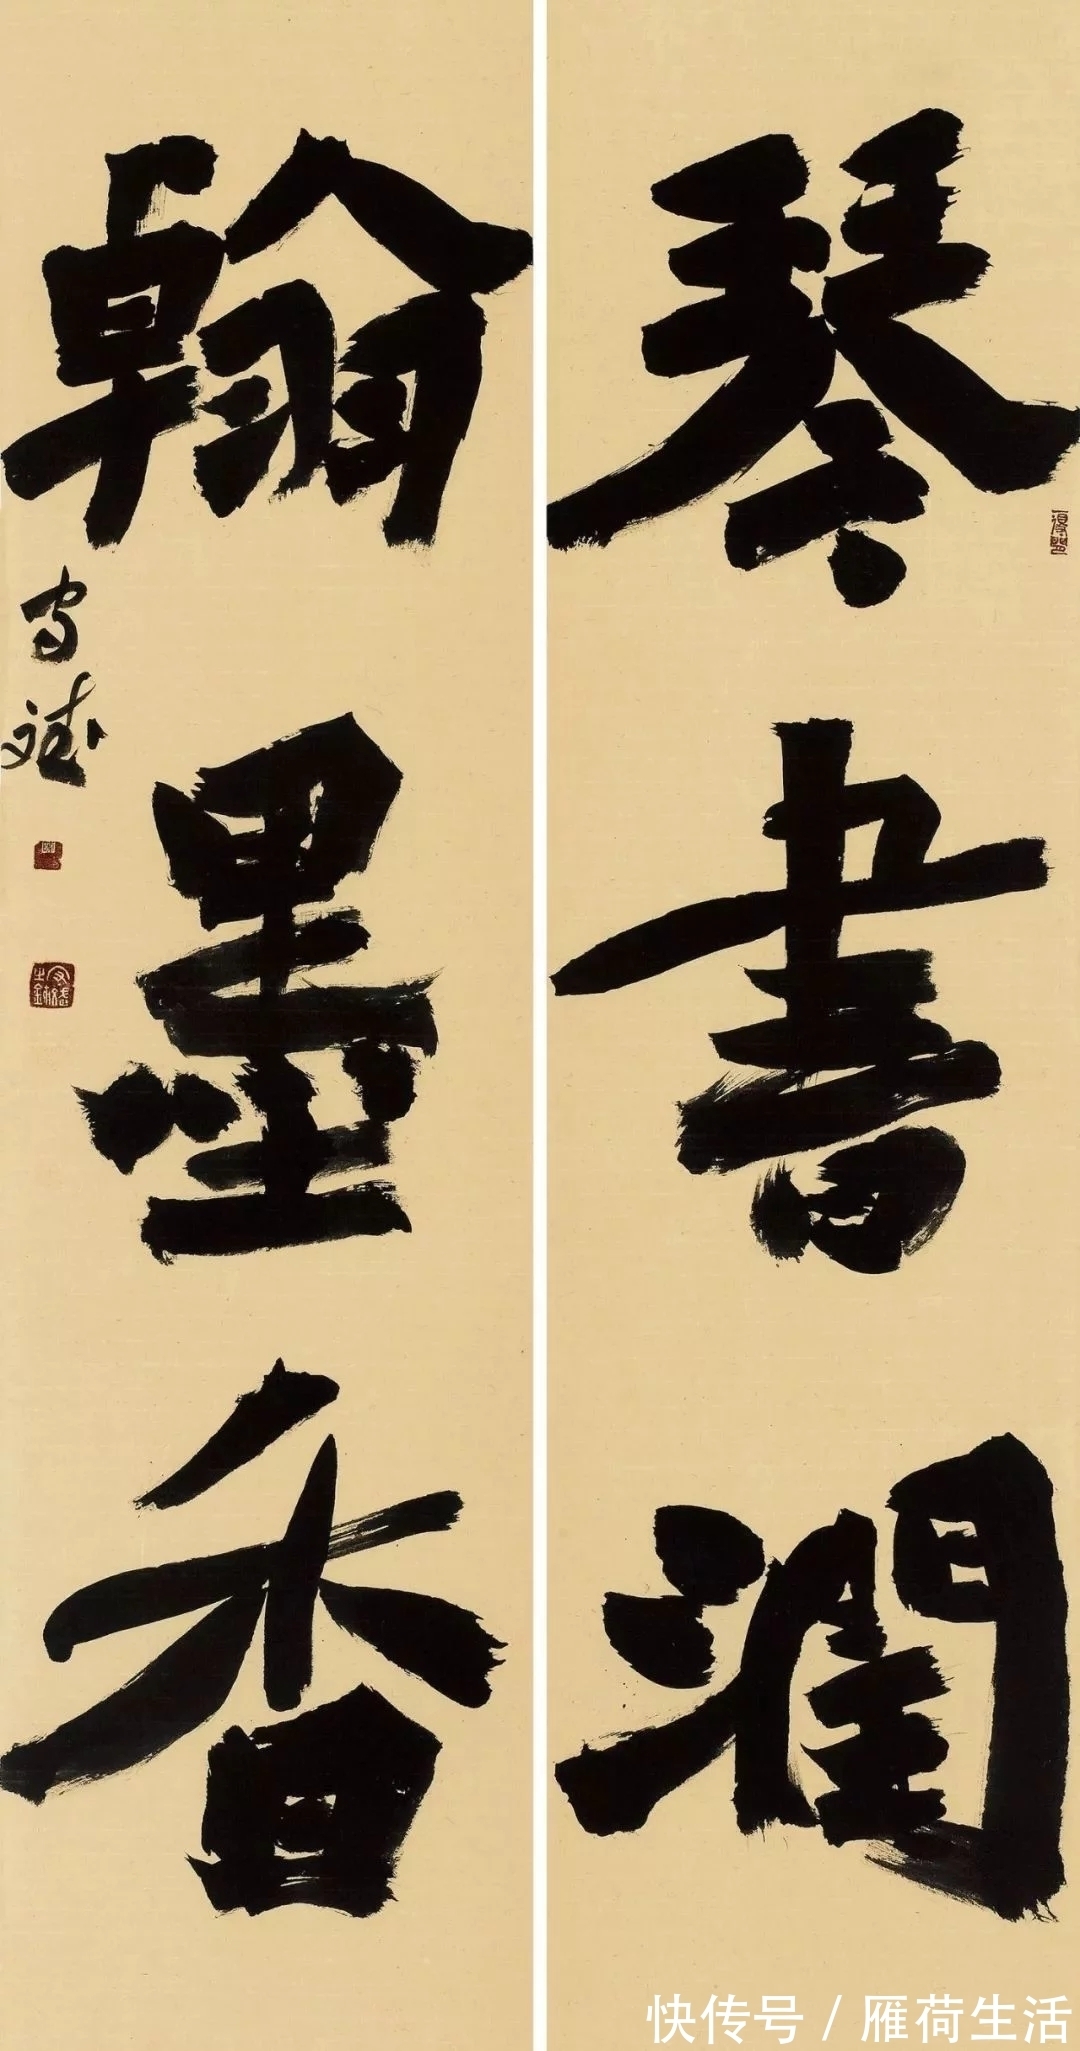 琴書潤
翰墨香
守斌
快传号 / 雁荷生活